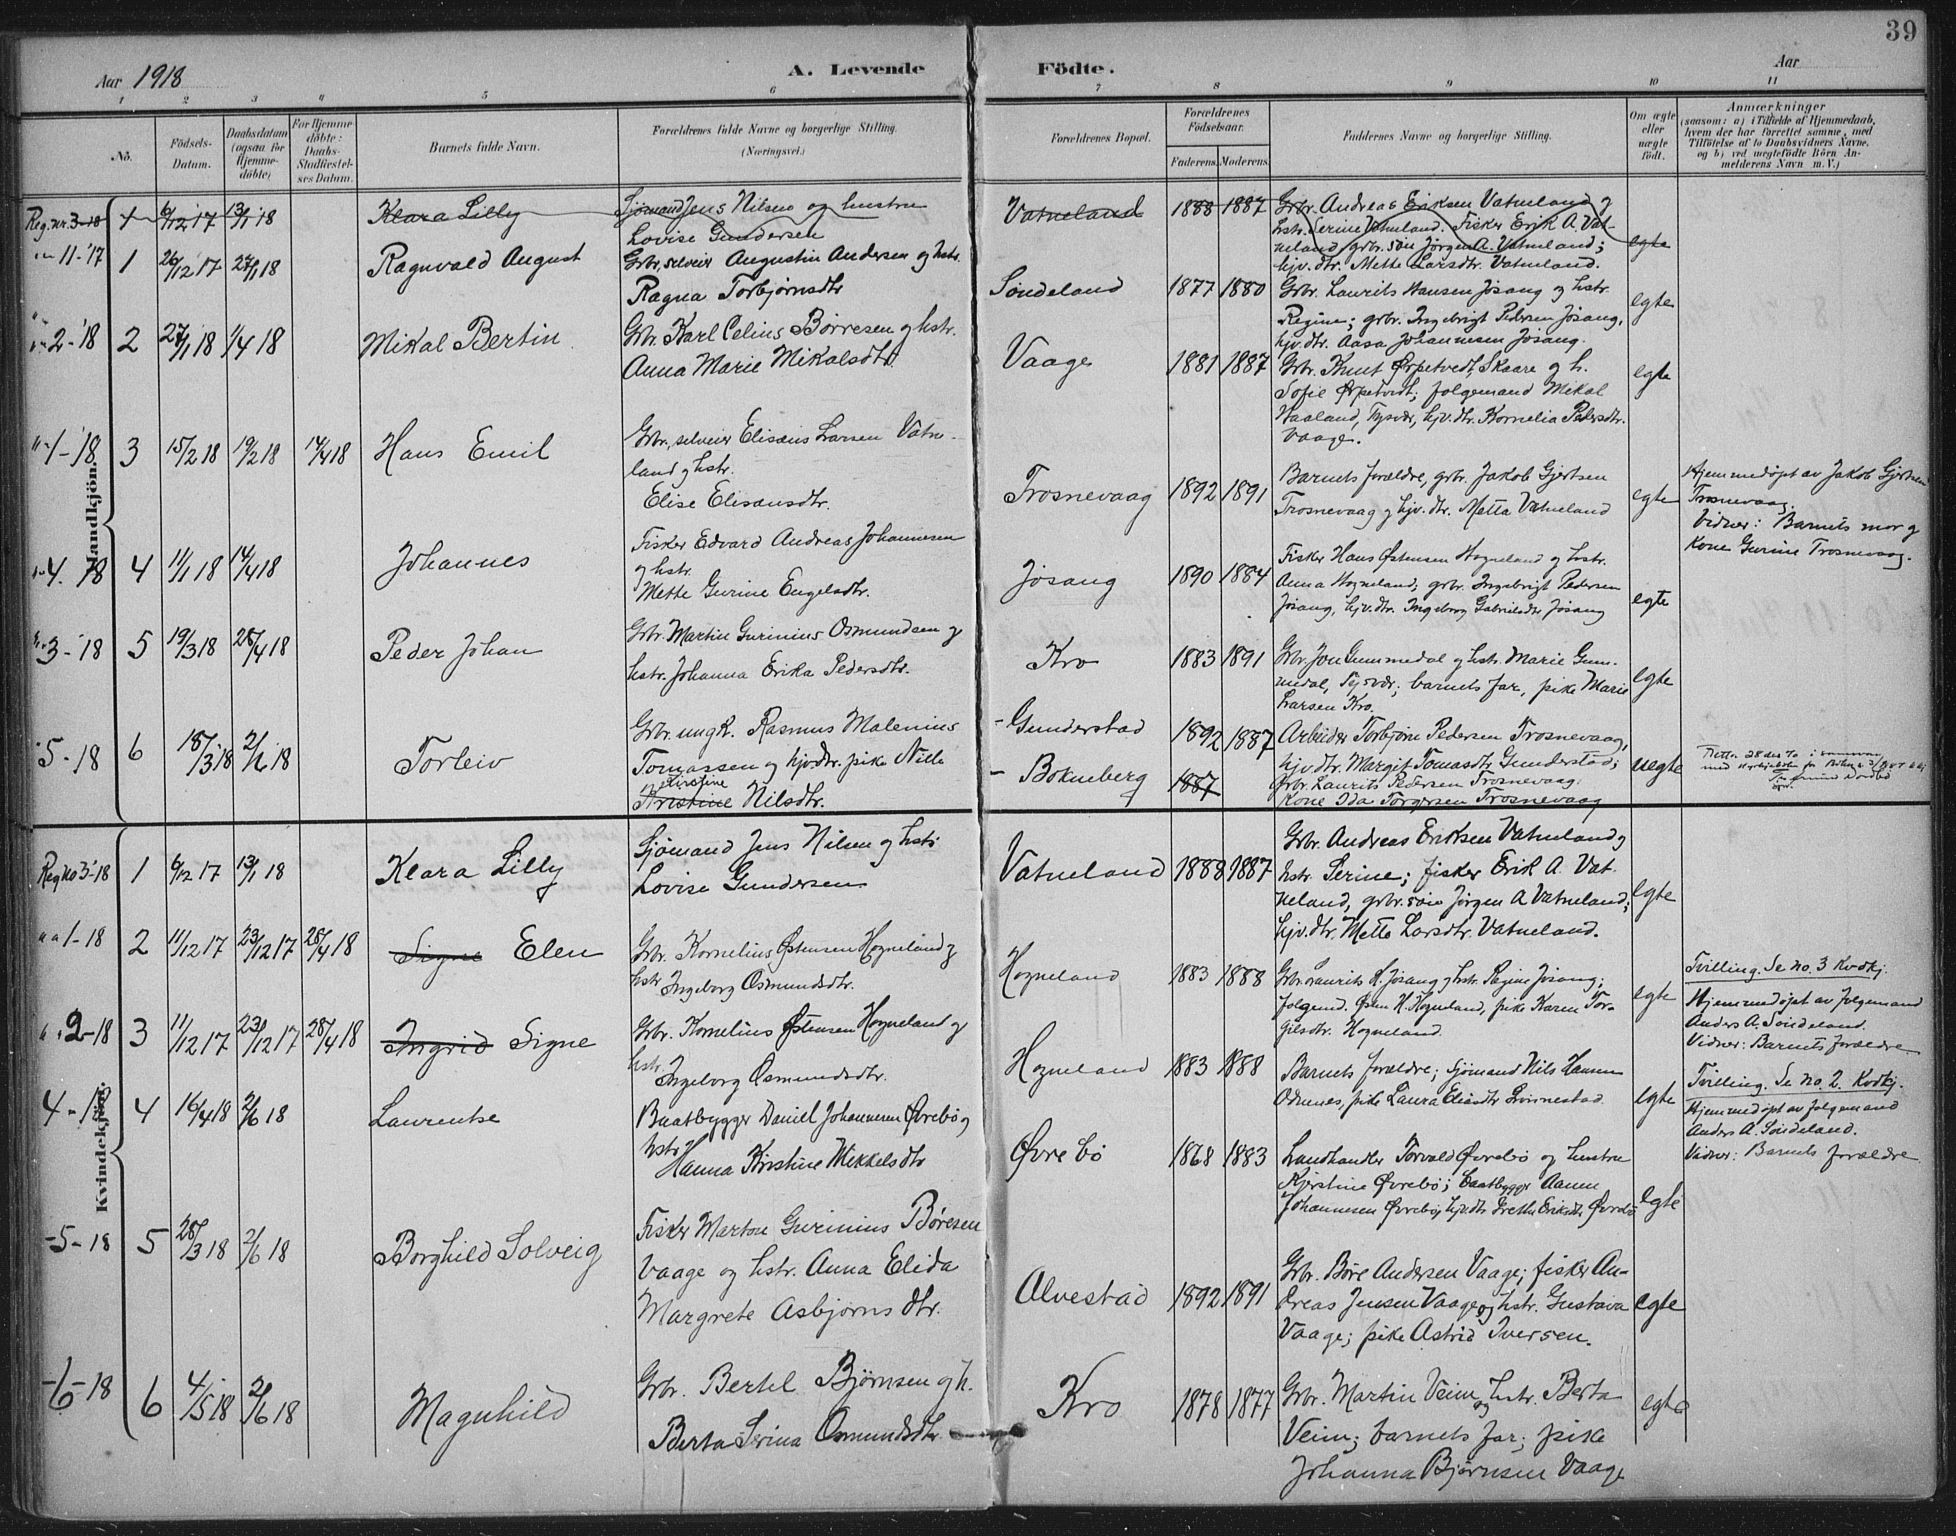 39
Aar 1918
A. Levende Födte.
Aar
1 2 3 4 5 6 7 8 9 10 11
No.
Födsels-
Datum.
Daabsdatum
(ogsaa for
Hjemme-
döbte)
For Hjemme-
döbte:
Daabs-
Stadfæstel-
ses Datum.
Barnets fulde Navn.
Forældrenes fulde Navne og borgerlige Stilling.
(Næringsvei.)
Forældrenes Bopæl.
Forældrenes
Födselsaar.
Faderens. Moderens.
Faddernes Navne og borgerlige Stilling.
Om ægte
eller
uægte
födt.
Anmærkninger
(saasom: a) i Tilfælde af Hjemmedaab,
hvem der har forrettet samme, med
Tilföielse af to Daabsvidners Navne,
og b) ved uægtefödte Börn An-
melderens Navn m. V.)
Mandkjön.
Reg. nr. 3-18 1 6/12 17 13/1 18 Klara Lilly
Sjömand Jens Nilsen og hustru
Lovise Gundersen
Vatneland 1888 1887
Grbr. Andreas Eriksen Vatneland og
hstr. Serine Vatneland. Fisker Erik A. Vat-
neland, grbr. søn Jørgen A. Vatneland;
hjv. dtr. Mette Larsdtr. Vatneland.
egte
11-'17 1 26/12 17 27/1 18 Ragnvald August
Grbr., selveier Augustin Andersen og hstr.
Ragna Torbjørnsdtr
Søndeland 1877 1880
Grbr. Laurits Hansen Jøsang og hstr.
Regine; grbr. Ingebrigt Pedersen Jøsang,
hjv. dtr. Aasa Johannesen Jøsang.
egte
2-'18 2 27/1 18 1/4 18 Mikal Bertin
Grbr. Karl Celius Børresen og hstr.
Anna Marie Mikalsdtr.
Vaage 1881 1887
Grbr. Knut Ørpetvedt, Skaare og h.
Sofie Ørpetvedt; folgemand Mikal
Haaland, Tysvær, hjv. dtr. Kornelia Pedersdtr.
Vaage.
egte
1-'18 3 15/2 18 19/2 18 14/4 18 Hans Emil
Grbr., selveier Elisæus Larsen Vatne-
land og hstr.
Elise Elisæusdtr.
Trosnevaag 1892 1891
Barnets forældre, grbr. Jakob Gjertsen
Trosnevaag og hjv. dtr. Metta Vatneland
egte
Hjemmedøpt av Jakob Gjertsen
Trosnevaag.
Vidner: Barnets mor og
Kone Gurine Trosnevaag.
4-18 4 11/1 18 14/4 18 Johannes
Fisker Edvard Andreas Johannesen
og hstr.
Mette Gurine Engelsdtr.
Jøsang 1890 1884
Fisker Hans Østensen Hogneland og hstr.
Anna Hogneland; grbr. Ingebrigt Pedersen
Jøsang, hjv. dtr. Ingeborg Gabrielsdtr Jøsang
egte
3-18 5 19/3 18 28/4 18 Peder Johan
Grbr. Martin Gurinius Osmundsen og
hstr. Johanna Erika Pedersdtr.
Kro 1883 1891
Grbr. Jon Gummedal og hstr. Marie Gum-
medal, Tysvær; barnets far, pike Marie
Larsen Kro.
egte
5-18 6 18/3 18 2/6 18 Torleiv
Grbr. ungk. Rasmus Malenius
Tomassen og hjv. dtr. pike Nille
Kirstine
Kristine Nilsdtr.
- Gunderstad
- Bokneberg
1892 1887
1887
Arbeider Torbjørn Pedersen Trosnevaag,
hjv dtr. Margit Tomasdtr Gunderstad;
Grbr. Laurits Pedersen Trosnevaag.
Kone Ida Torgersen Trosnevaag
uegte
Kvindekjön.
Reg no 3-18 1 6/12 17 13/1 18 Klara Lilly
Sjømand Jens Nilsen og hstr
Lovise Gundersen
Vatneland 1888 1887
Grbr. Andreas Eriksen Vatneland og
hstr. Serine; fisker Erik A. Vat-
neland, grbr. søn Jørgen A Vatneland;
hjv. dtr. Mette Larsdtr. Vatneland.
egte
1-18 2 11/12 17 23/12 17 28/4 18 Signe Elen
Grbr. Kornelius Østensen Hogneland og
hstr Ingeborg Osmundsdtr.
Hogneland 1883 1888
Grbr. Laurits H. Jøsang og hstr. Regine Jøsang;
folgemd. Østen H. Hogneland, pike Karen Tor-
gilsdtr. Hogneland.
egte
Tvilling. Se no. 3 Kvdkj.
Hjemmedøpt av folgemand
Anders A. Søndeland.
Vidner: Barnets forældre
2-18 3 11/12 17 23/12 17 28/4 18 Ingrid Signe
Grbr. Kornelius Østensen Hogneland og
hstr
Ingeborg Osmundsdtr.
Hogneland 1883 1888
Barnets forældre; Sjömand Nils Hansen
Odnenes, pike Laura Eliasdtr Grønnestad.
egte
Tvilling. Se no. 2. Kvdkj.
Hjemmedøpt av folgemand
Anders A. Søndeland.
Vidner: Barnets forældre
4-18 4 16/4 18 2/6 18 Laurentse
Baatbygger Daniel Johannesen Øvrebø og
hstr
Hanna Kristine Mikkelsdtr
Øvrebö 1868 1883
Landhandler Torvald Øvrebø og hustru
Kjerstine Øvrebø; baatbygger Aanen
Johannesen Øvrebø, hjvdtr Grethe Eriksdtr, Øvrebø
egte
-5-18 5 28/3 18 2/6 18 Borghild Solveig
Fisker Marton Gurinius Børesen
Vaage og hstr. Anna Elida
Margrete Asbjørnsdtr.
Alvestad 1892 1891
Grbr. Børe Andersen Vaage; fisker An-
dreas Jensen Vaage og hstr. Gustava
Vaage; pike Astrid Iversen.
egte
-6-18 6 4/5 18 2/6 18 Magnhild
Grbr. Bertel Bjørnsen og h.
Berta Serina Osmundsdtr.
Kro 1878 1877
Grbr. Martin Veim og hstr. Berta
Veim; barnets far; pike
Johanna Bjørnsen Vaage
egte